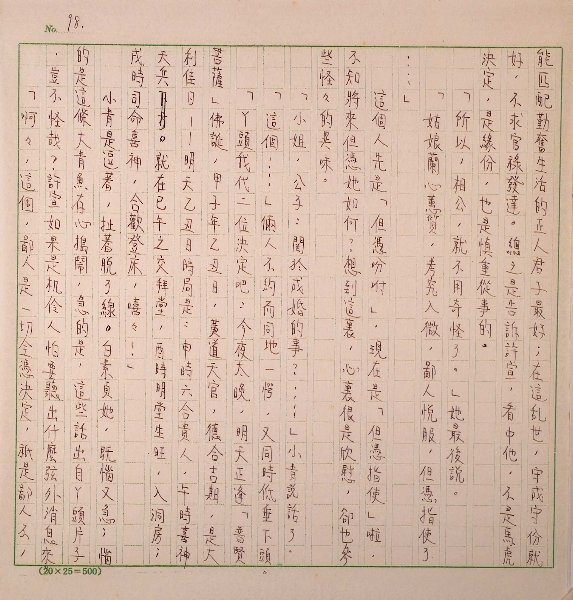 No. 98.
能匹配勤奮生活的正人君子最好；在這亂世，字我守份就
好，不求官祿發達。總之是告訴許宣，看中他，不是馬虎
決定，是緣份，也是慎重從事的。
「所以，相公，就不用奇怪了。」她最後說。
「姑娘蘭心蕙質，考究入微，鄙人悅服，但憑指使了
⋯⋯」
這個人先是「但憑吩咐」，現在是「但憑指使」啦，
不知將來但憑她如何？想到這裏，心裏很是欣慰，卻也參
些怪怪的異味。
「小姐，公子：關於成婚的事？⋯⋯」小青說話了。
「這個⋯⋯」倆人不約而同地一愕，又同時低垂下頭。
「丫頭我代二位決定吧：今夜太晚，明天正逢「普賢
菩薩」佛誕，甲子年乙丑日，黃道天官，德合吉期，是大
利佳日——明天乙丑日時局是：申時六合貴人，午時喜神
天兵　　。就在巳午之交拜堂，酉時明堂生旺，入洞房；
戌時司命喜神，合歡登床，嘻々！」
小青是逗着，扯着脫了線。白素貞她，既惱又急；惱
的是這條大青魚存心搗鬧，急的是，這些話出自丫頭片子
，豈不怪哉？許宣如果是机伶人怕要聽出什麼弦外消息來
「啊々，這個　鄙人是一切全憑決定　祇是鄙人去，
(20×25=500)